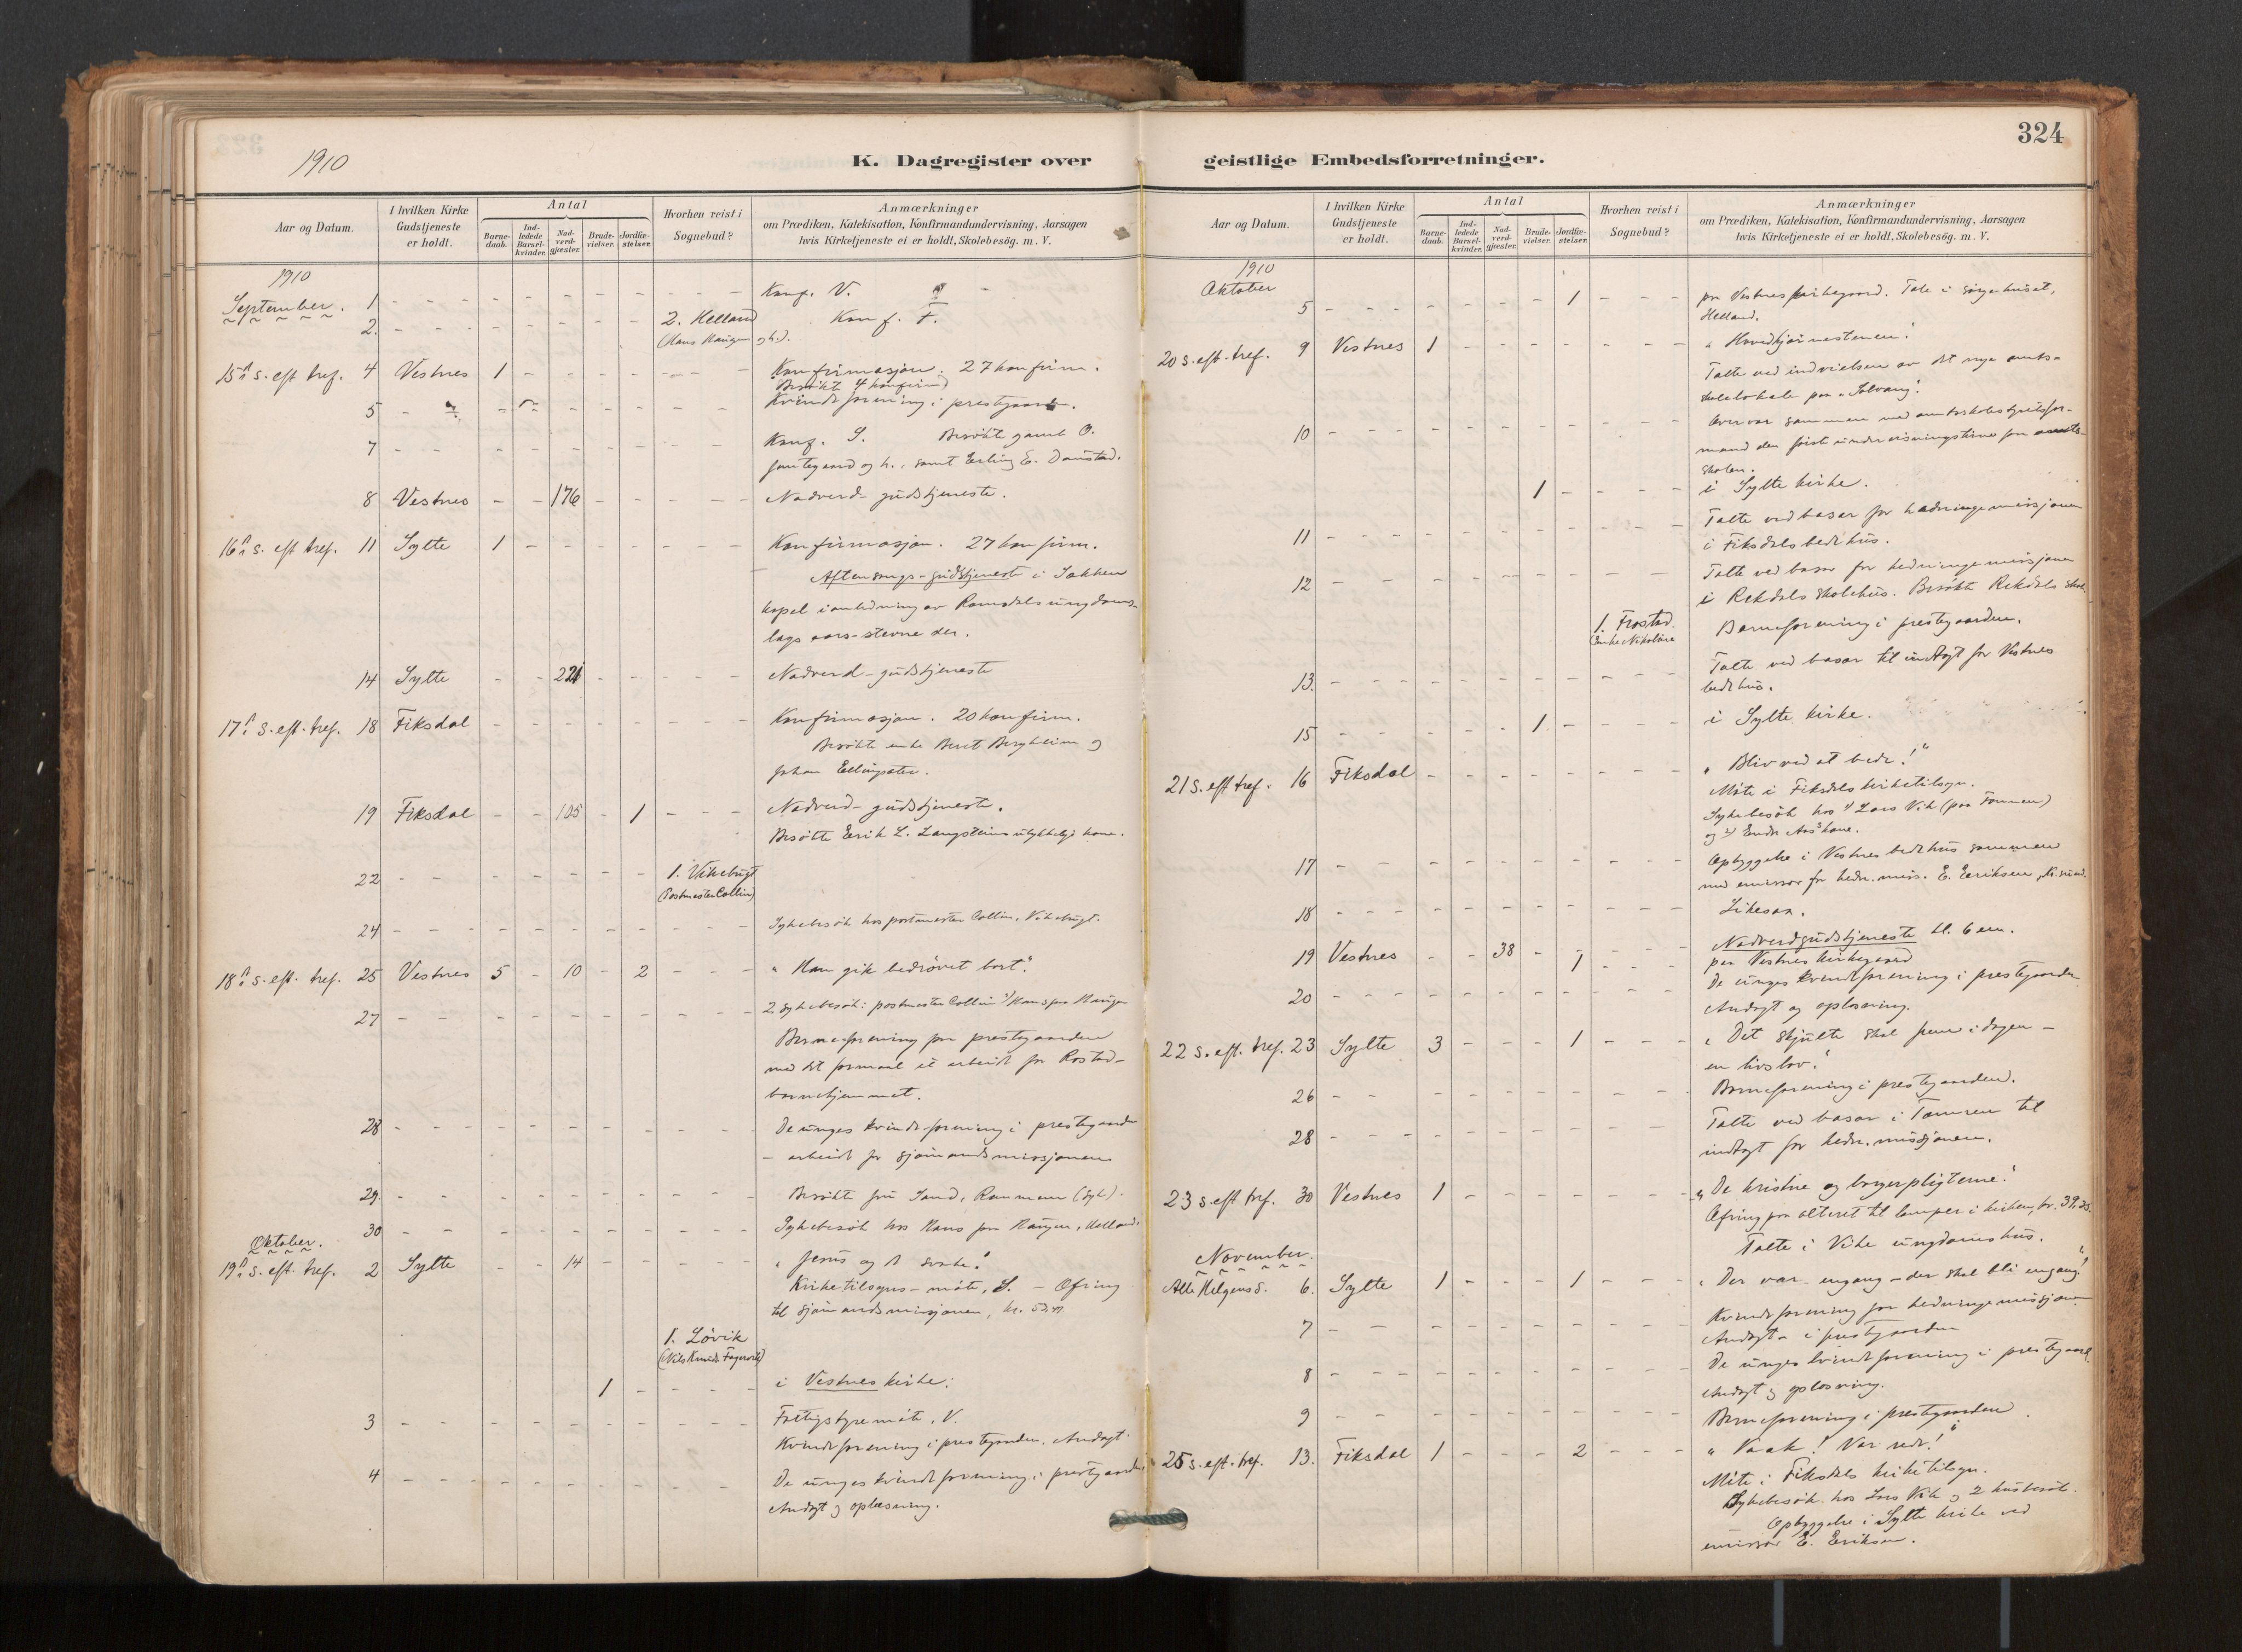 324
1910
K. Dagregister over
geistlige Embedsforretninger.
Aar og Datum.
I hvilken Kirke Gudstjeneste er holdt.
Antal
Barnedaab.
Indledede Barselkvinder.
Nadverdgjæster.
Brudevielser.
Jordfæstelser.
Hvorhen reist i Sognebud?
Anmærkninger
om Prædiken, Katekisation, Konfirmandundervisning, Aarsagen
hvis Kirketjeneste ei er holdt, Skolebesøg. m. V.
1910
September. 1 - - - - - - - Konf. V.
2. - - - - - - 2. Helland Konf. F.
(Hans Haugen og h.).
15de s. eft. tref. 4 Vestnes 1 - - - - - Konfirmasjon. 27 konfirm.
Besøkte 4 konfirm)
5 - - - - - - - Kvindeforening i prestegaarden.
7 - - - - - - - Konf. S. Besøkte gamle O.
og h., samt Erling E. Daustad.
8 Vestnes - - 176 - - - - Nadverd-gudstjeneste.
16de s. eft. tref. 11 Sylte 1 - - - - - - Konfirmasjon. 27 konfirm.
Aftensangs-gudstjeneste i Sokken
kapel i anledning av Romsdals ungdoms-
lags aars-stevne der.
14 Sylte - - 221 - - - - Nadverd-gudstjeneste
17de s. eft. tref. 18 Fiksdal - - - - - - - Konfirmasjon. 20 konfirm.
Besøkte enke Beret Bergheim og
Johan Ellingsæter.
19 Fiksdal - - 105 - 1 - - Nadverd-gudstjeneste.
Besøkte Erik L. Langsteins ulykkelige kone.
22 - - - - - - 1. Vikebugt
(Postmester Collin)
24 - - - - - - - Sykebesøk hos postmester Collin, Vikebugt.
18de s. eft. tref. 25 Vestnes 5 - 10 - 2 - - „Han gik bedrøvet bort."
27 - - - - - - - 2 sykebesøk: postmester Collin Hans paa Haugen
Barneforening paa prestegaarden
med det formaal at arbeide for Rostad-
barnehjemmet.
28 - - - - - - - De unges kvindeforening i prestegaarden
- arbeide for sjømandsmissjonen
29. - - - - - - - Besøkte fru Sand, (syk).
30 - - - - - - - Sykebesøk hos Hans paa Haugen, Helland.
Oktober.
19de s. eft. tref. 2 Sylte - - 14 - - - - „Jesus og
Kirketilsyns-møte, S. - Ofring
til sjømandsmisjonen, kr.
1. Løvik
(Nils Knuds Fagervik)
1 - - - - i Vestnes kirke.
3 - - - - - - - Fattigstyremøte, V.
Kvindeforening i prestegaarden. Andagt.
4 - - - - - - - De unges kvindeforening i prestegaarden.
Andagt og oplæsning.
Aar og Datum.
I hvilken Kirke Gudstjeneste er holdt.
Antal
Barnedaab.
Indledede Barselkvinder.
Nadverdgjæster.
Brudevielser.
Jordfæstelser.
Hvorhen reist i Sognebud?
Anmærkninger
om Prædiken, Katekisation, Konfirmandundervisning, Aarsagen
hvis Kirketjeneste ei er holdt, Skolebesøg. m. V.
1910
Oktober
5 - - - - - 1 - - - paa Vestnes kirkegaard. Tale i sørgehuset,
Helland.
20 s. eft. tref. 9 Vestnes 1 - - - - - - „Hovedhjørnestenen."
Talte ved indvielsen av det nye amts-
skolelokale paa „Solvang".
10 - - - - - - - Overvar sammen med amtsskolestyrets for-
mand den første undervisningstime paa amts-
skolen.
1 - - - - i Sylte kirke.
Talte ved basar for hedningemissjonen
11 - - - - - - - i Fiksdals bedehus.
Talte ved basar for hedningemissjonen
12 - - - - - - - i Rekdals skolehus. Besøkte Rekdals skole
1. Frostad. Barneforening i prestegaarden.
(Enke Nikoline
Talte ved basar til indtægt for Vestnes
13. - - - - - - - bedehus.
15 - - - - - 1 - - - i Sylte kirke.
21 s. eft. tref. 16 Fiksdal - - - - - - - „Bliv ved at bede!"
Møte i Fiksdals kirketilsyn.
Sykebesøk hos 1) Lars Vik (paa Tommen)
og 2) Endre Aas' kone.
17 - - - - - - - Opbyggelse i Vestnes bedehus sammen
med emissær for hedn. miss. E. Eriksen, Kr.sund.
18 - - - - - - - Likesaa.
Nadverdgudstjeneste kl. 6 em.
19 Vestnes - - 38 - 1 - - paa Vestnes kirkegaard
De unges kvindeforening i prestegaarden.
20 - - - - - - - Andagt og oplæsning.
22 s. eft. tref. 23 Sylte 3 - - - 1 - - „Det skjulte skal frem i dagen -
en livslov."
26 - - - - - - - Barneforening i prestegaarden.
28 - - - - - - - Talte ved basar i Tomren til
indtægt for hedn. missjonen.
23 s. eft. tref. 30 Vestnes 1 - - - - - - „De kristne og borgerpligterne."
Ofring paa alteret til lamper i kirken, kr. 39,25.
Talte i Vike ungdomshus.
November.
Alle Helgens d. 6. Sylte 1 - - - 1 - - „Der var engang - der skal bli engang."
Kvindeforening for hedningemissjonen
7 - - - - - - - Andagt i prestegaarden
De unges kvindeforening i prestegaard.
8 - - - - - - - Andagt og oplæsning.
9 - - - - - - - Barneforening i prestegaarden
25 s. eft. tref. 13. Fiksdal 1 - - - 2 - - „Vaak! Vær rede!"
Møte i Fiksdals kirketilsyn.
Sykebesøk hos Lars Vik og 2 husbesøk.
Opbyggelse i Sylte kirke ved
emissær E. Eriksen.